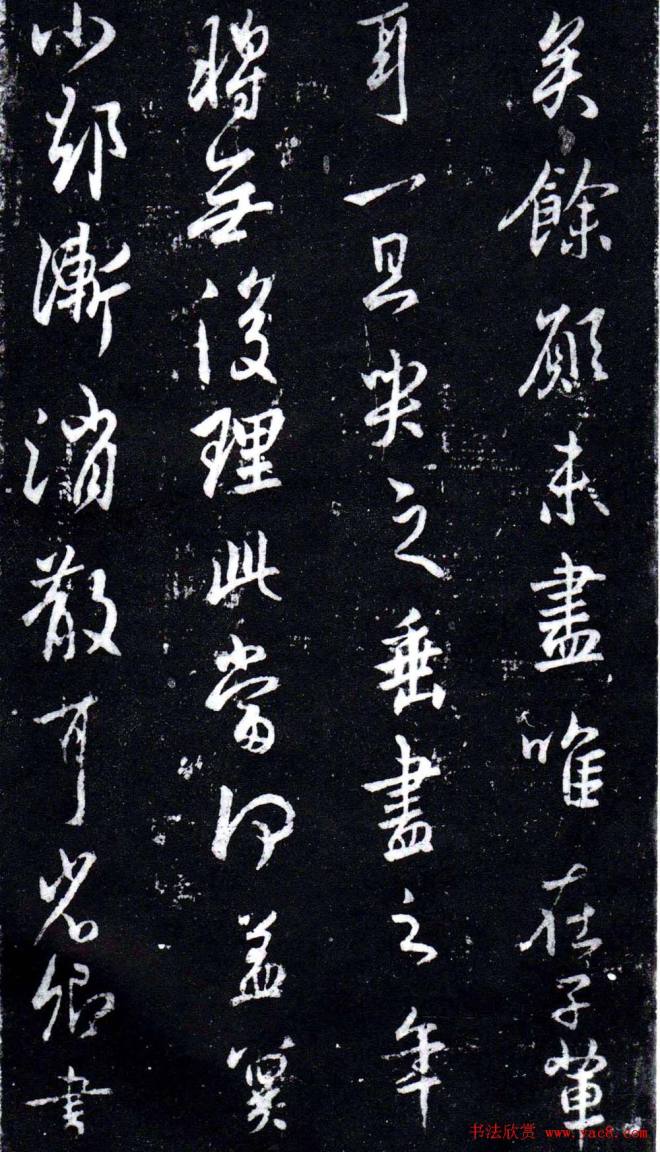 矣餘願未盡唯在子輩
耳一旦哭之垂盡之年
將無復理此當何益冀
小却漸消散耳省卿書
书法欣赏 www.yac8.com